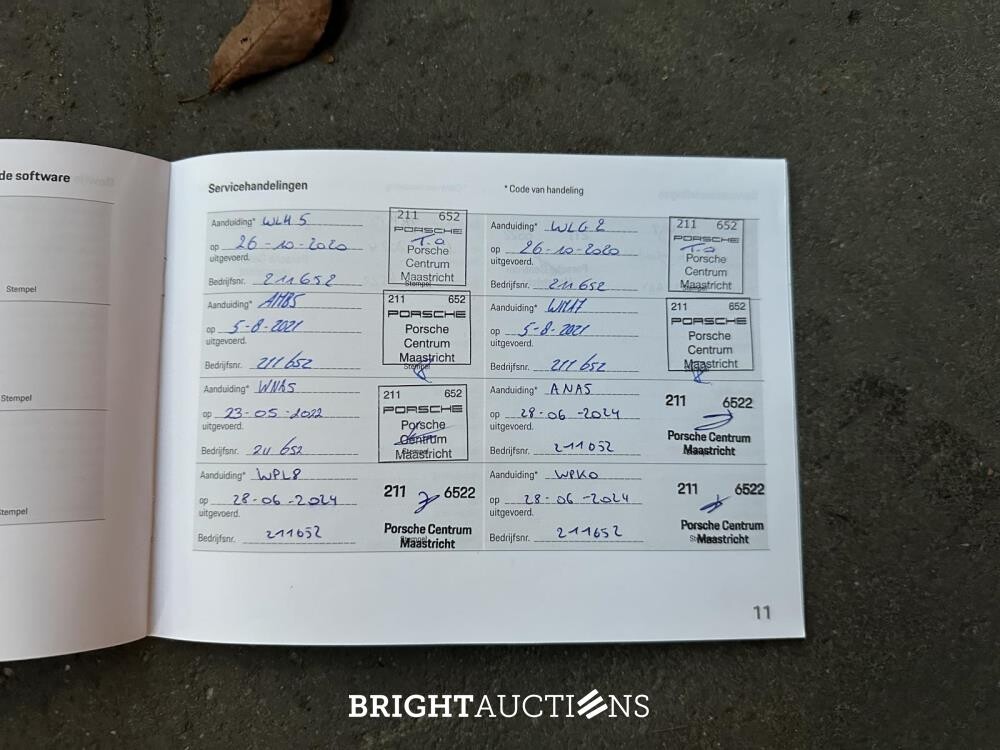 de software
Stempel
Stempel
Stempel
Servicehandelingen
* Code van handeling
Aanduiding* WLH 5
op 26-10-2020
uitgevoerd.
Bedrijfsnr. 211652
211 652
PORSCHE
Porsche
Centrum
Maastricht
Stempel
Aanduiding* WLG 2
op 26-10-2020
uitgevoerd.
Bedrijfsnr. 211652
211 652
PORSCHE
Porsche
Centrum
Maastricht
Aanduiding* AMB5
op 5-8-2021
uitgevoerd.
Bedrijfsnr. 211652
211 652
PORSCHE
Porsche
Centrum
Maastricht
Stempel
Aanduiding* WMA7
op 5-8-2021
uitgevoerd.
Bedrijfsnr. 211652
211 652
PORSCHE
Porsche
Centrum
Maastricht
Aanduiding* WNA5
op 23-05-2022
uitgevoerd.
Bedrijfsnr. 211652
211 652
PORSCHE
Porsche
Centrum
Maastricht
Aanduiding* ANA5
op 28-06-2024
uitgevoerd.
Bedrijfsnr. 211652
211 6522
Porsche Centrum
Maastricht
Aanduiding* WPL8
op 28-06-2024
uitgevoerd.
Bedrijfsnr. 211652
211 6522
Porsche Centrum
Maastricht
Aanduiding* WPK0
op 28-06-2024
uitgevoerd.
Bedrijfsnr. 211652
211 6522
Porsche Centrum
Maastricht
11
BRIGHTAUCTIONS